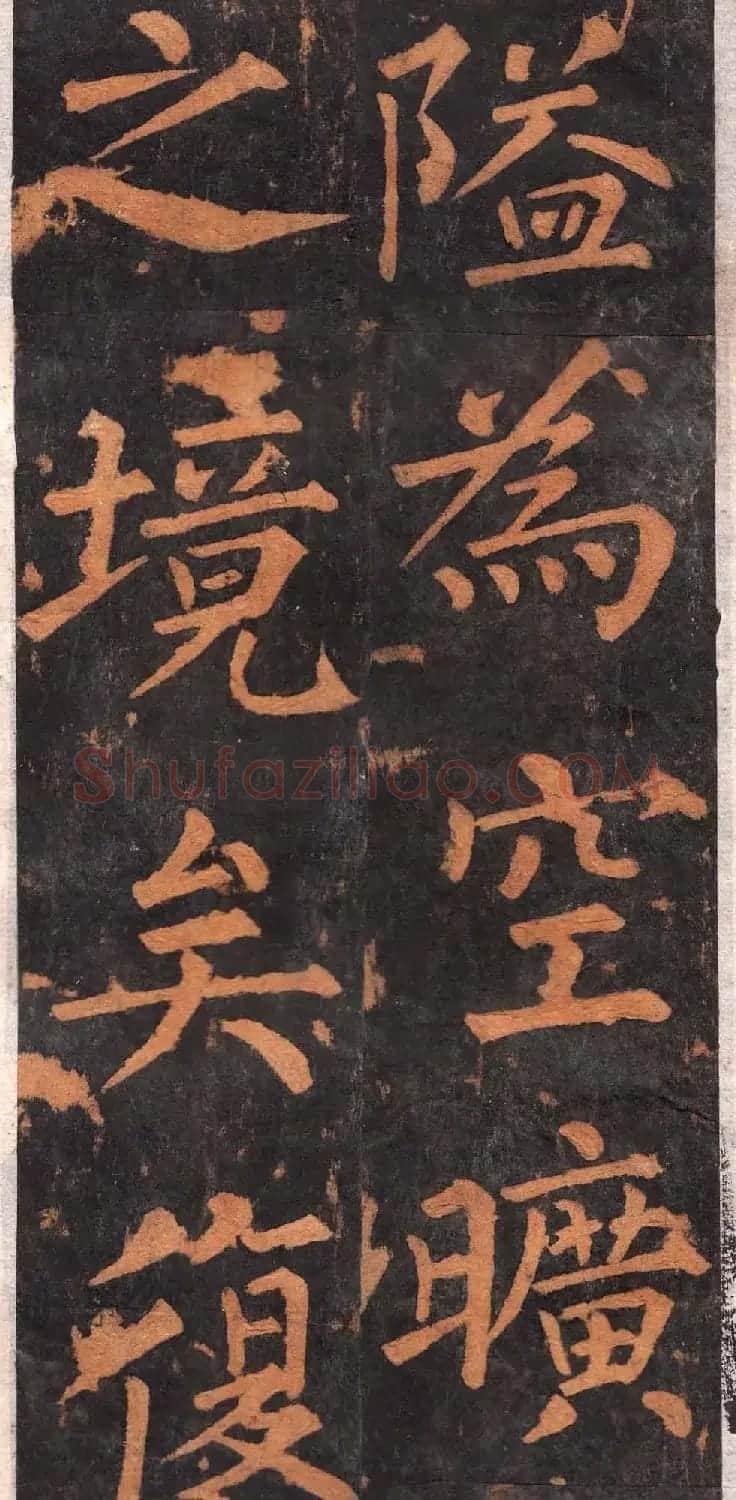 隘為空曠
之境矣復
Shufaziliao.COM